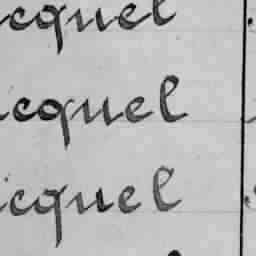 cquel
cquel
cquel